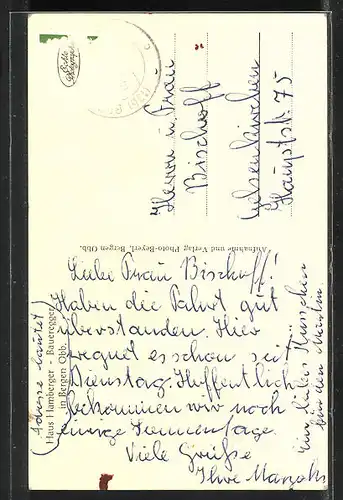 Echte
Photographie
Herrn u. Frau
Bischoff
Gelsenkirchen
Hauptstr. 75
Aufnahme und Verlag Photo-Beyerl, Bergen Obb.
(Adresse lautet)
Haus Hamberger - Baueregger
in Bergen Obb.
Liebe Frau Bischoff!
Haben die Fahrt gut
überstanden. Hier
regnet es schon seit
Dienstag. Hoffentlich
bekommen wir noch
einige Sonnentage.
Viele Grüße
Ihre
Ein liebes Küsschen
von den